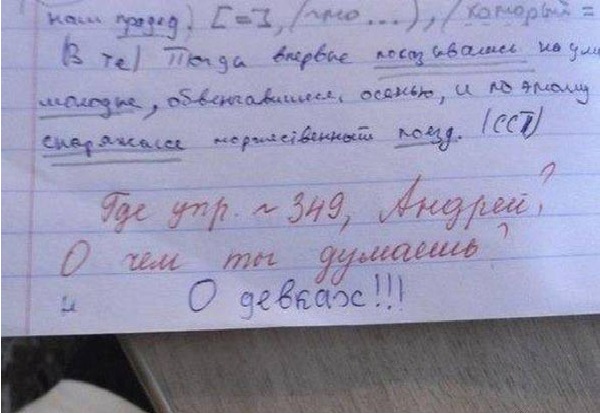 наш прадед). [=], (что...), (который =
(В те) Тогда впервые показывались на ули
молодые, обвенчавшиеся осенью, и поэтому
снаряжался торжественный поезд. (ССП)
Где упр. ~ 349, Андрей?
О чем ты думаешь?
и О девках!!!